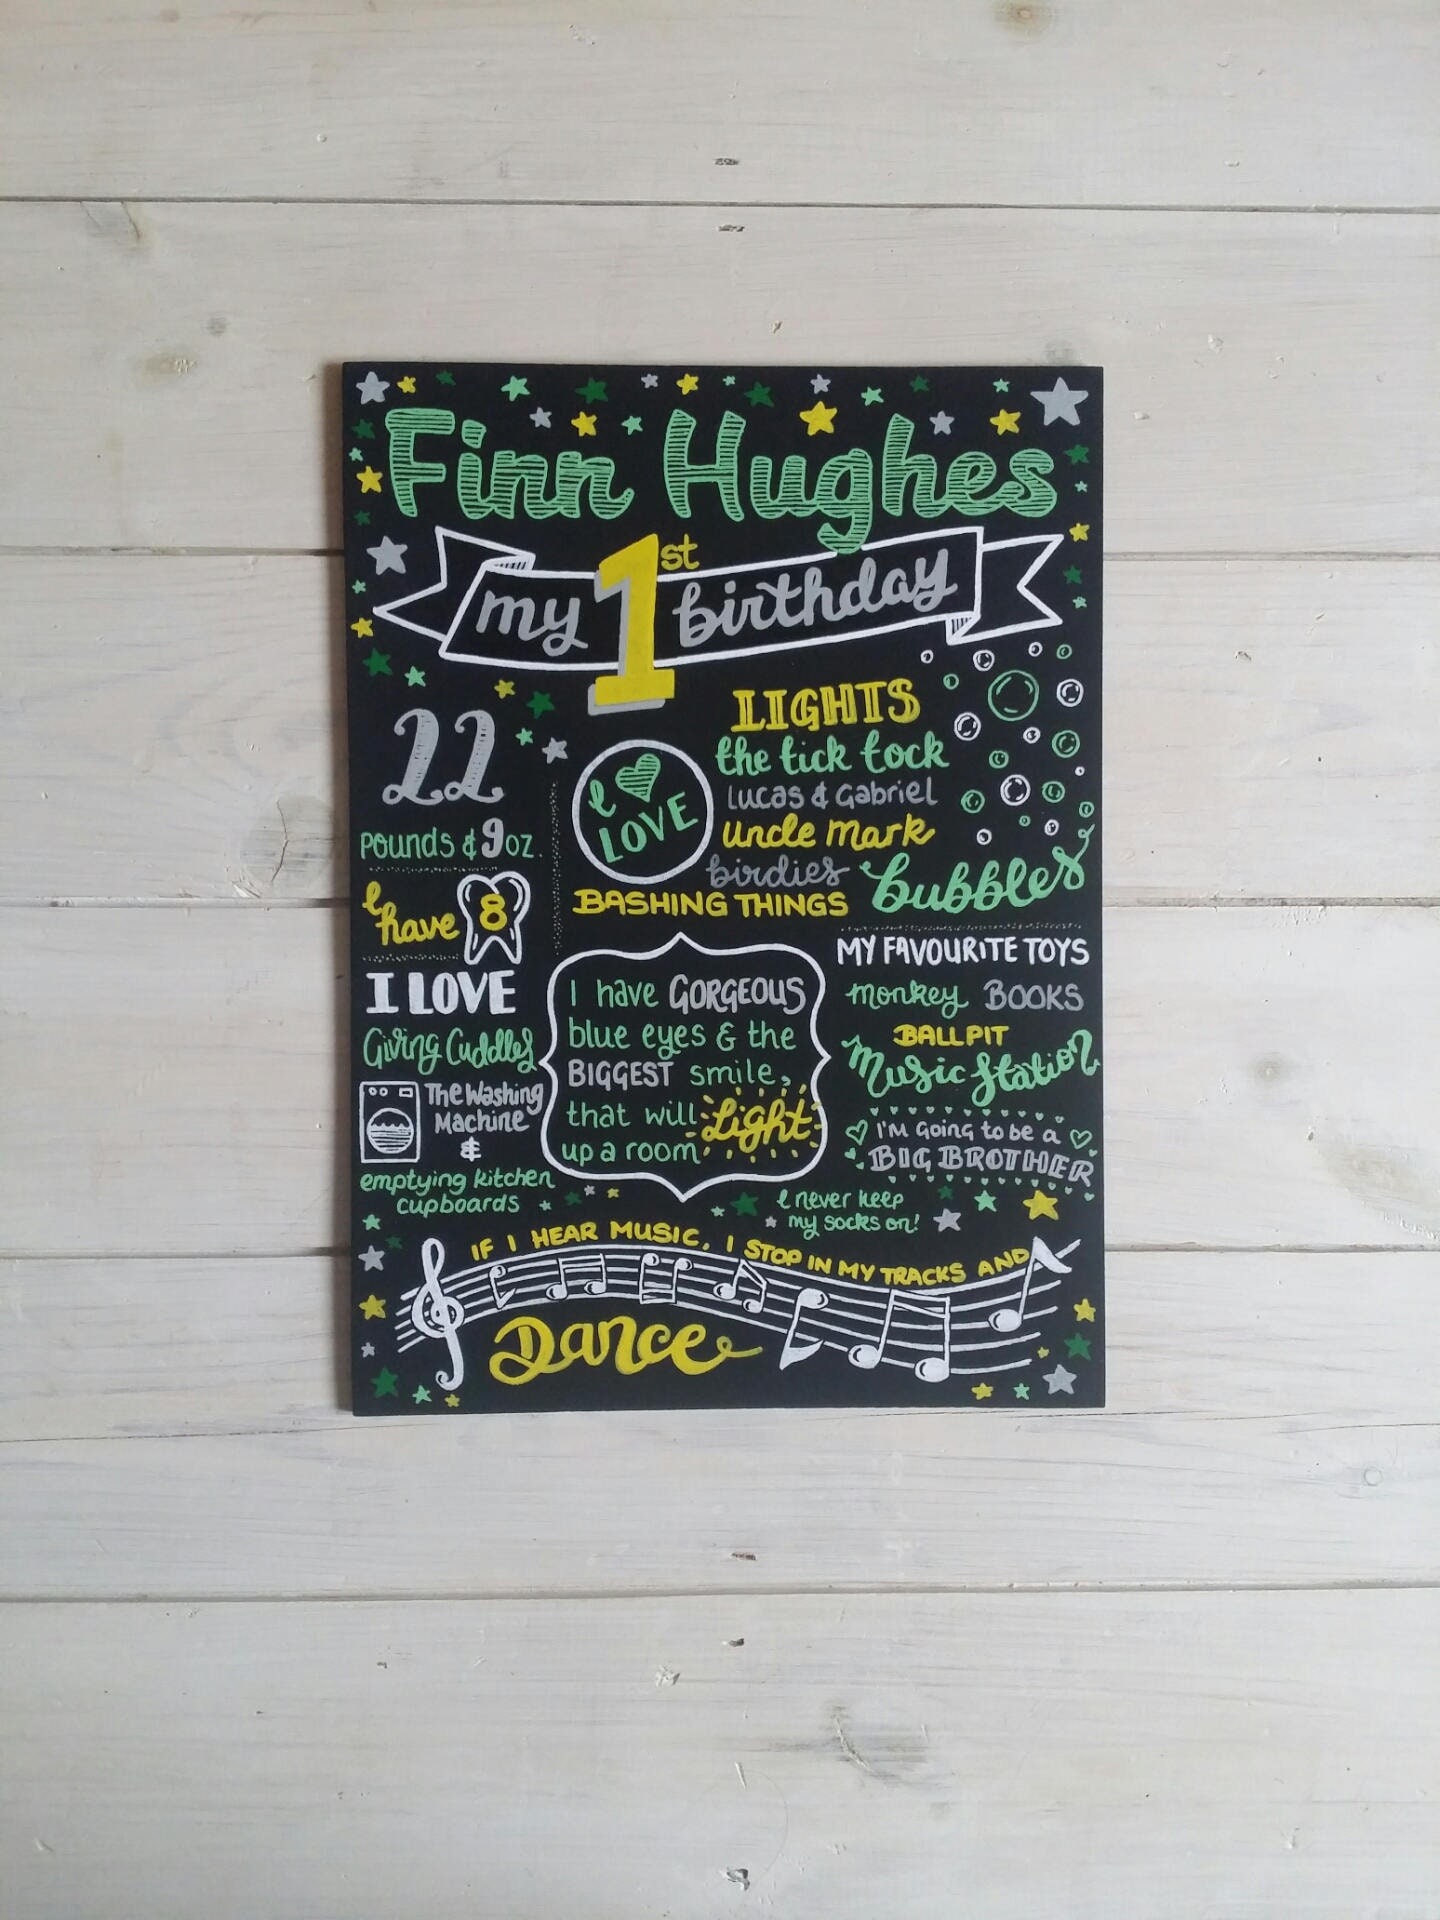 Finn Hughes
my 1st birthday
22
pounds & 9 oz.
I have 8
I LOVE
Giving Cuddles
The Washing
Machine
&
emptying kitchen
cupboards
I LOVE
LIGHTS
the tick tock
Lucas & Gabriel
uncle mark
birdies
bubbles
BASHING THINGS
I have GORGEOUS
blue eyes & the
BIGGEST smile,
that will Light
up a room
MY FAVOURITE TOYS
monkey BOOKS
BALLPIT
Music Station
I'm going to be a
BIG BROTHER
I never keep
my socks on!
IF I HEAR MUSIC, I STOP IN MY TRACKS AND
Dance